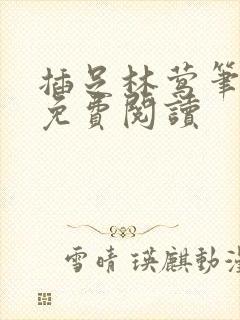 插足林莺筆
免費閱讀
雪晴 瑛麒動漫